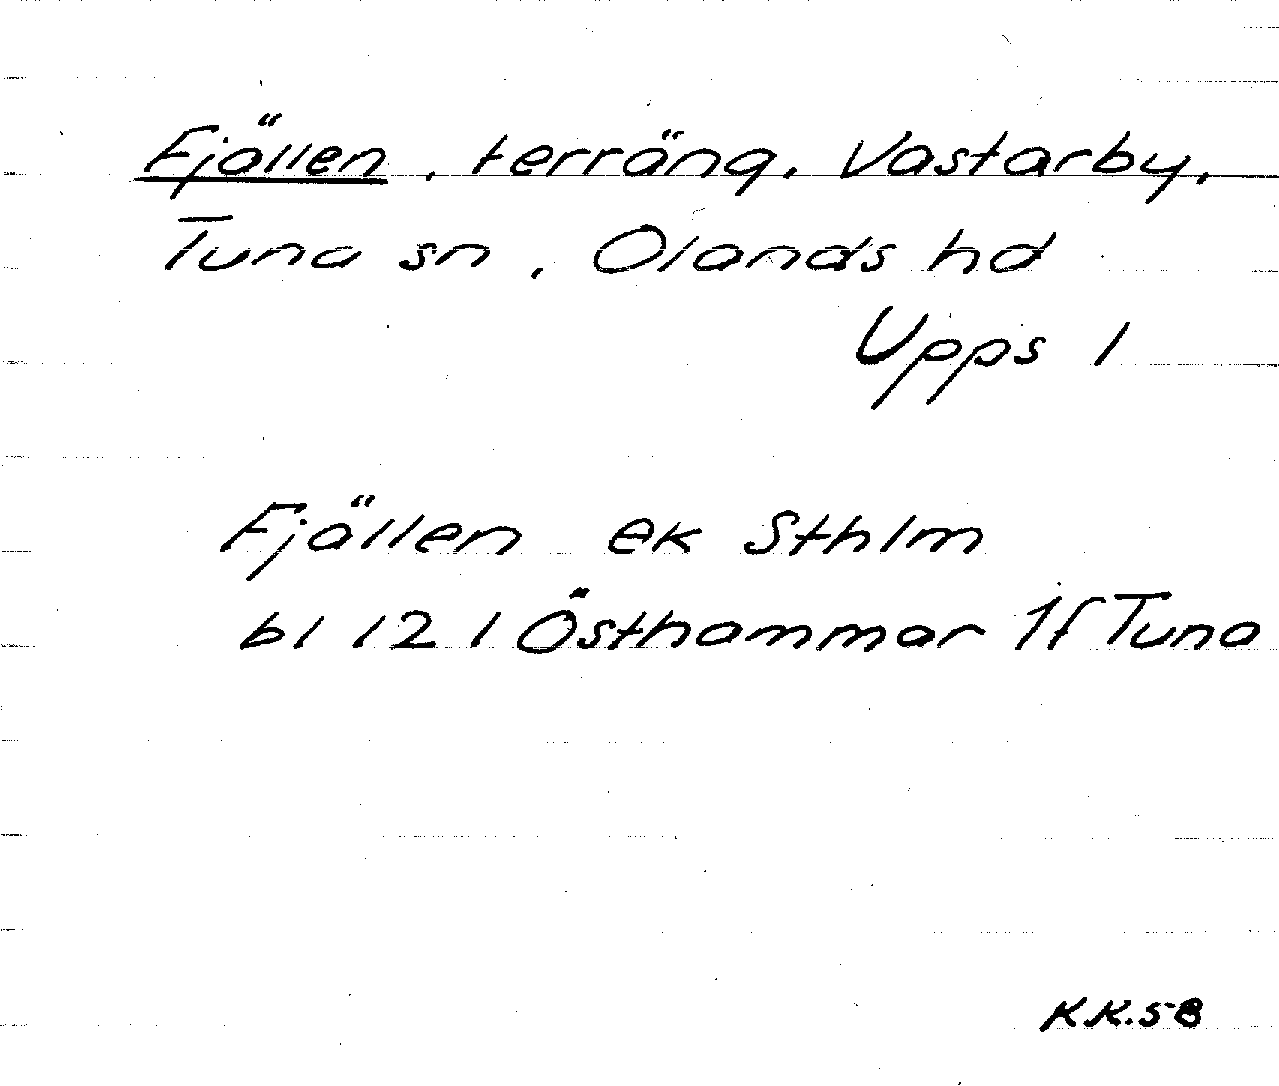 Fjällen, terräng, Vastarby,
Tuna sn, Olands hd
Upps l
Fjällen ek Sthlm
bl 121 Östhammar 1f Tuna
K.K.58